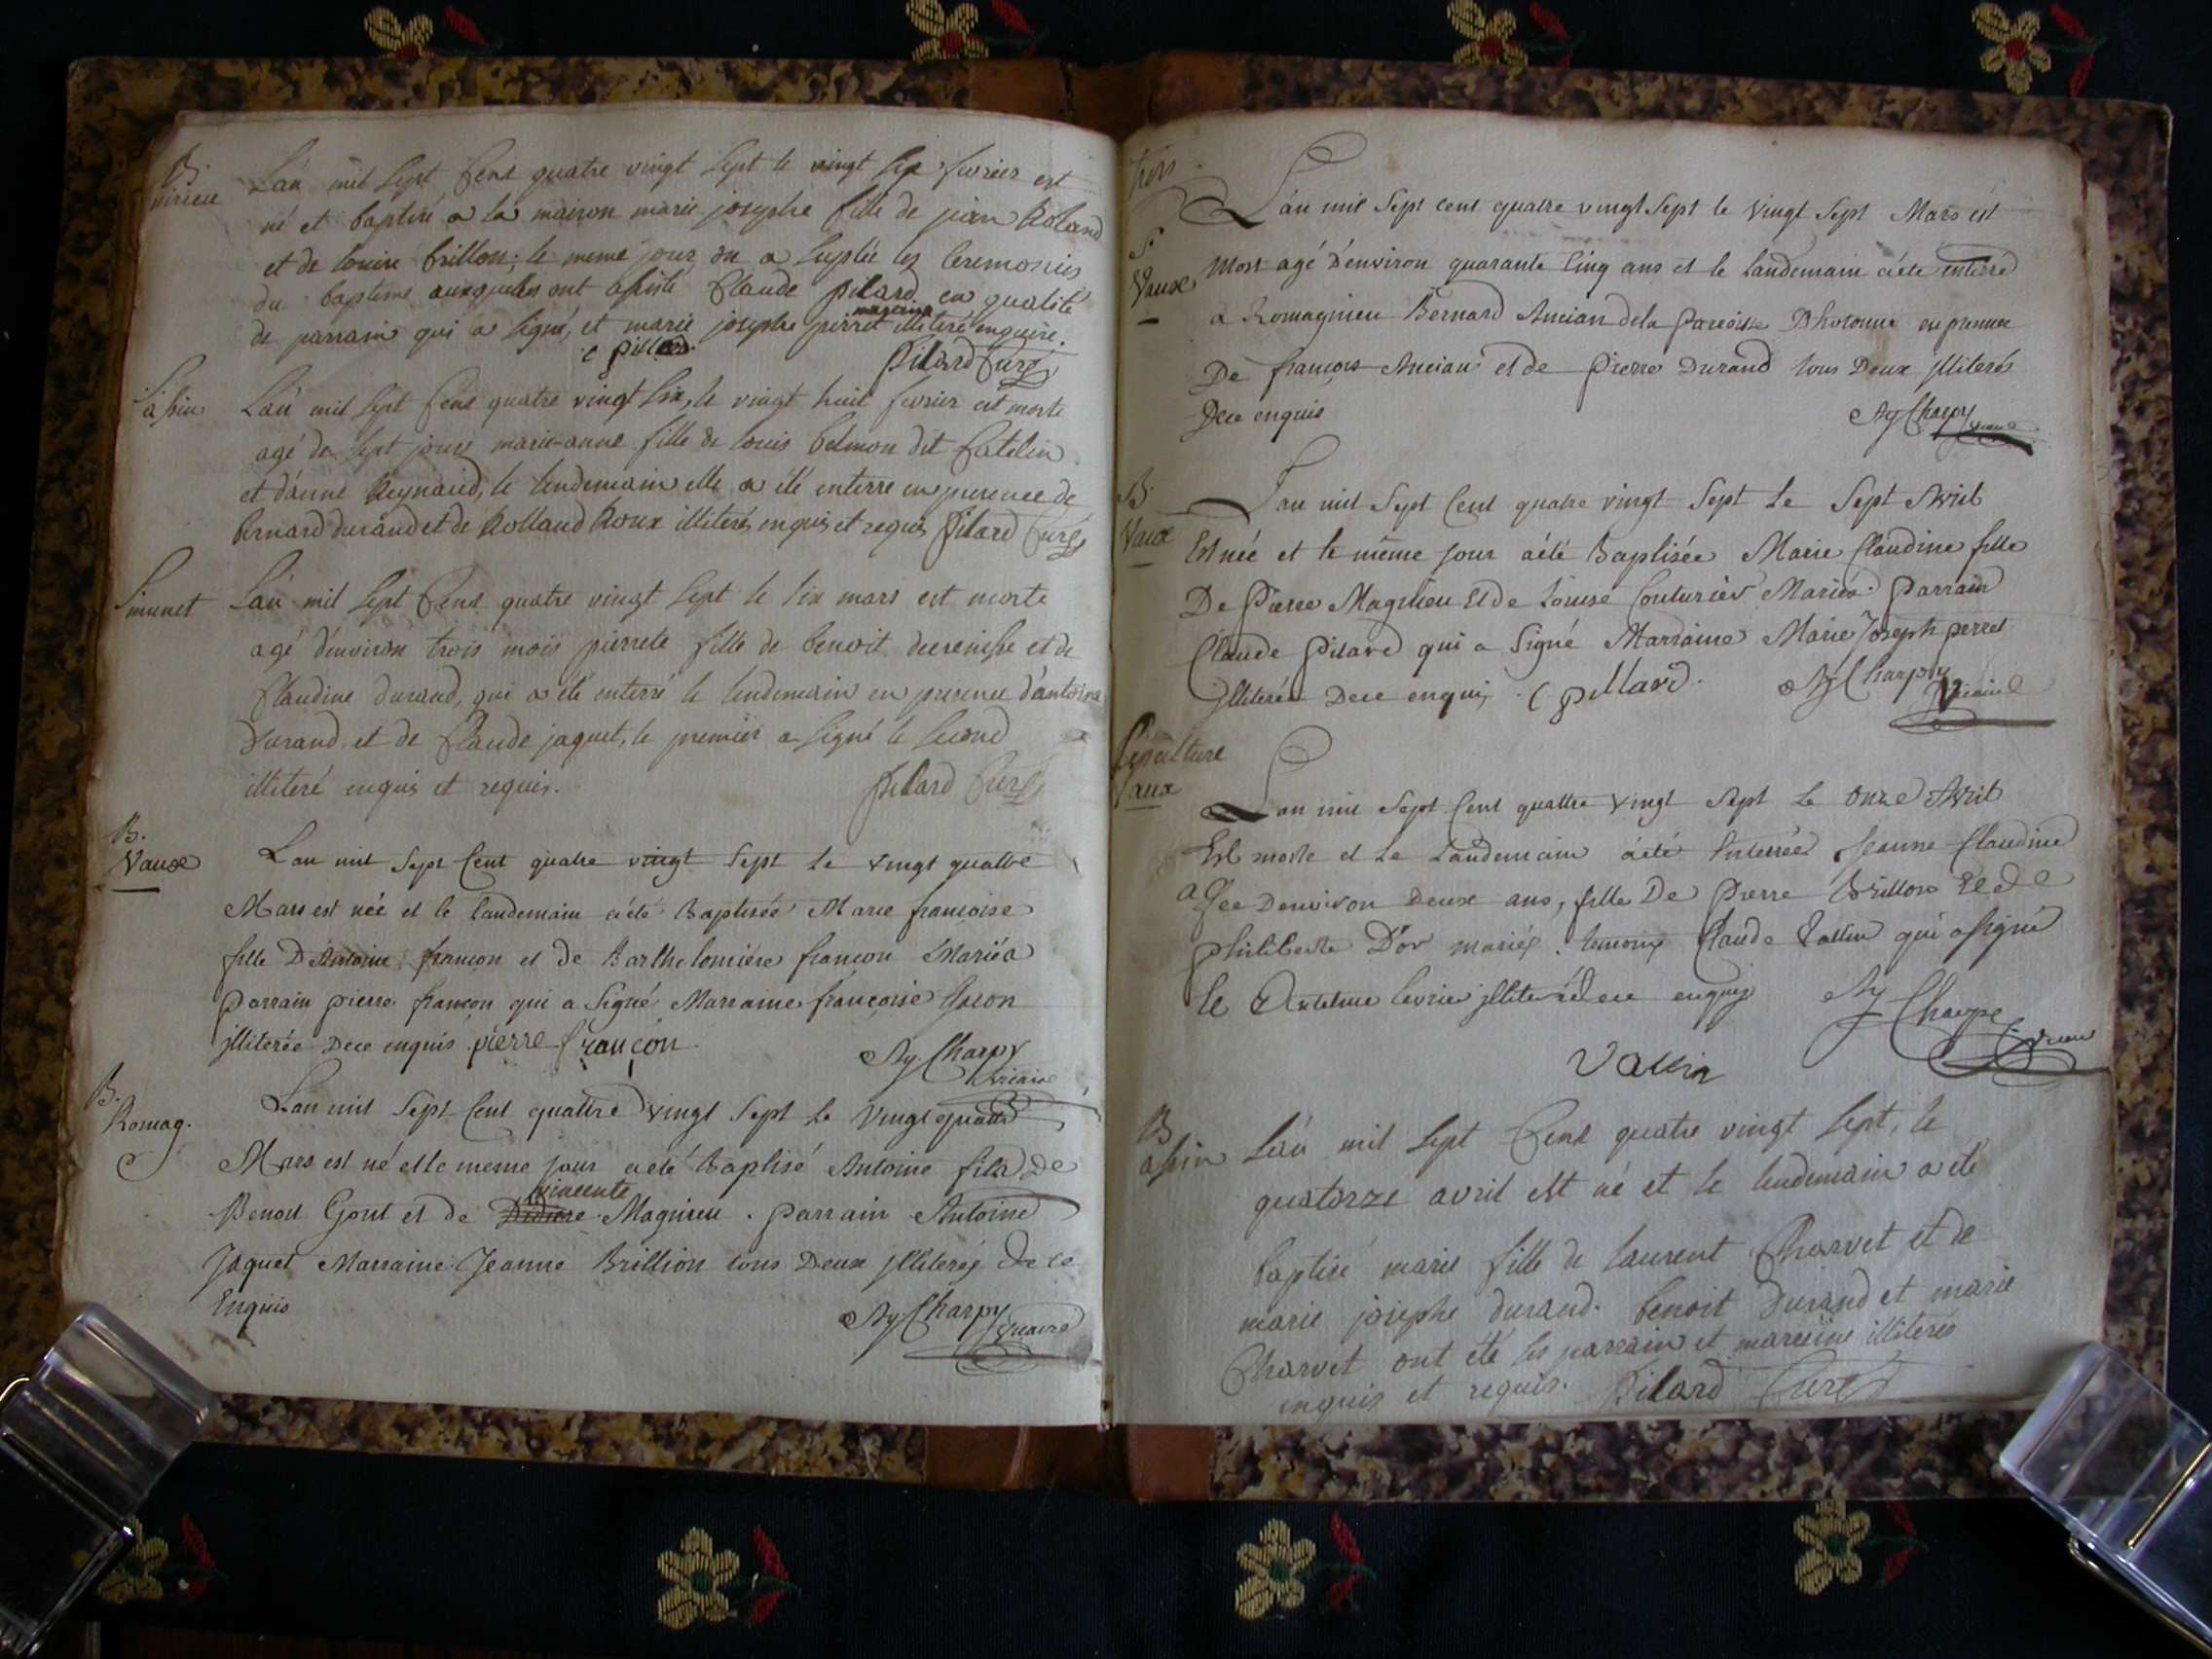 B.
virieu
L'an mil sept cent quatre vingt sept le vingt six fevrier est
né et baptisé a la maison marie josephe fille de jean Roland
et de louise brillon; le meme jour on a suplée les ceremonies
du bapteme auxquelles ont assisté Claude pilard en qualité
de parrain qui a signé, et marie josephe pierret marraine illiteré enquise.
c pillard. Pilard Curé
S.
assin
L'an mil sept cent quatre vingt six, le vingt huit fevrier est morte
agé de sept jours marie-anne fille de louis belmon dit Catelin
et d'anne Reynaud, le lendemain elle a été enterre en presence de
bernard durand et de Rolland Roux illiterés enquis et requis Pilard Curé
S.
munet
L'an mil sept cent quatre vingt sept le six mars est morte
agé d'environ trois mois pierrete fille de benoit et de
Claudine durand, qui a été enterré le lendemain en presence d'antoine
durand et de Claude jaquet, le premier a signé le second
illiteré enquis et requis. Pilard Curé
B.
Vaux
L'an mil sept cent quatre vingt sept le vingt quatre
Mars est née et le landemain a été Baptisée Marie francoise
fille D'Antoine françon et de Barthelomiére francon Mariés
Parrain pierre françon qui a signé Marraine françoise
jlliterée Dece enquis pierre françon Ay. Charpy
Vicaire
B.
Romag.
L'an mil sept cent quattre vingt sept le vingt quattre
Mars est né et le meme jour a été Baptisé Antoine fils De
Benoit Gout et de Didiere vincente Magnieu. Parrain Antoine
Jaquet Marraine Jeanne Brillion tous Deux jlliterés Dece
Enquis Ay Charpy Vicaire
trois
S
Vaux
L'an mil sept cent quatre vingt sept le vingt sept Mars est
Mort agé d'environ quarante cinq ans et le landemain a été enterré
a Romagnieu Bernard Ancian dela Paroisse en presence
De françois Ancian et de Pierre Durand tous Deux jlliterés
Dece enquis Ay Charpy Vicaire
B.
Vaux
L'an mil sept cent quatre vingt sept le sept Avril
Est née et le même jour a été Baptisée Marie Claudine fille
De Pierre Magnieu Et de Louise Couturier Mariés. Parrain
Claude Pilard qui a signé Marraine Marie Joseph perret
jlliterée Dece enquis. C pillard. Ay Charpy
Vicaire
Sepulture
Vaux
L'an mil sept cent quattre vingt sept le onze Avril
Est morte et le landemain a été Enterrée Jeanne Claudine
agée Denviron Deux ans, fille De Pierre Brillon Et de
philiberte D'or mariés. temoins Claude Vallin qui a signé
et jlliteré Dece enquis Ay Charpe
Vicaire
Vallin
B
assin
L'an mil sept cent quatre vingt sept, le
quatorze avril est né et le lendemain a été
baptisé marie fille de laurent Charvet et de
marie josephe durand. benoit durand et marie
Charvet ont été les parrain et marreine illiterés
enquis et requis. Pilard Curé